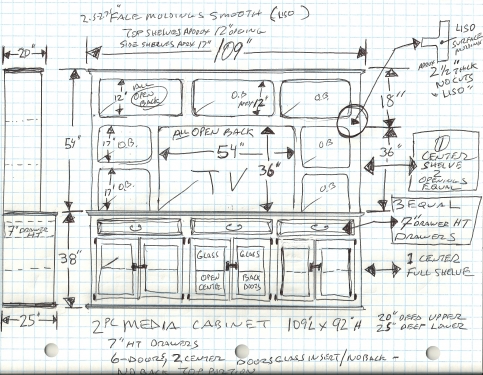 FACE MOLDINGS SMOOTH (LISO)
TOP SHELVES APROX 12" OPENING
SIDE SHELVES APRX 17"
109"
20"
LISO
SURFACE
MOLDING
APROX
2 1/2" THICK
NO CUTS
"LISO"
12"
ALL
OPEN
BACK
O.B
APRX 12"
O.B
18"
54"
17"
O.B.
ALL OPEN BACK
54"
36"
TV
O.B
36"
17"
O.B.
O.B
1
CENTER
SHELVE
2
OPENINGS
EQUAL
3 EQUAL
7" DRAWER HT
DRAWERS
7" DRAWER
HT
38"
GLASS
OPEN
CENTER
GLASS
BACK
DOORS
1 CENTER
FULL SHELVE
25"
2 PC MEDIA CABINET 109"L x 92"H
20" DEEP UPPER
25" DEEP LOWER
7" HT DRAWERS
6-DOORS, 2 CENTER DOORS GLASS INSERT/NO BACK -
NO BACK TOP PORTION